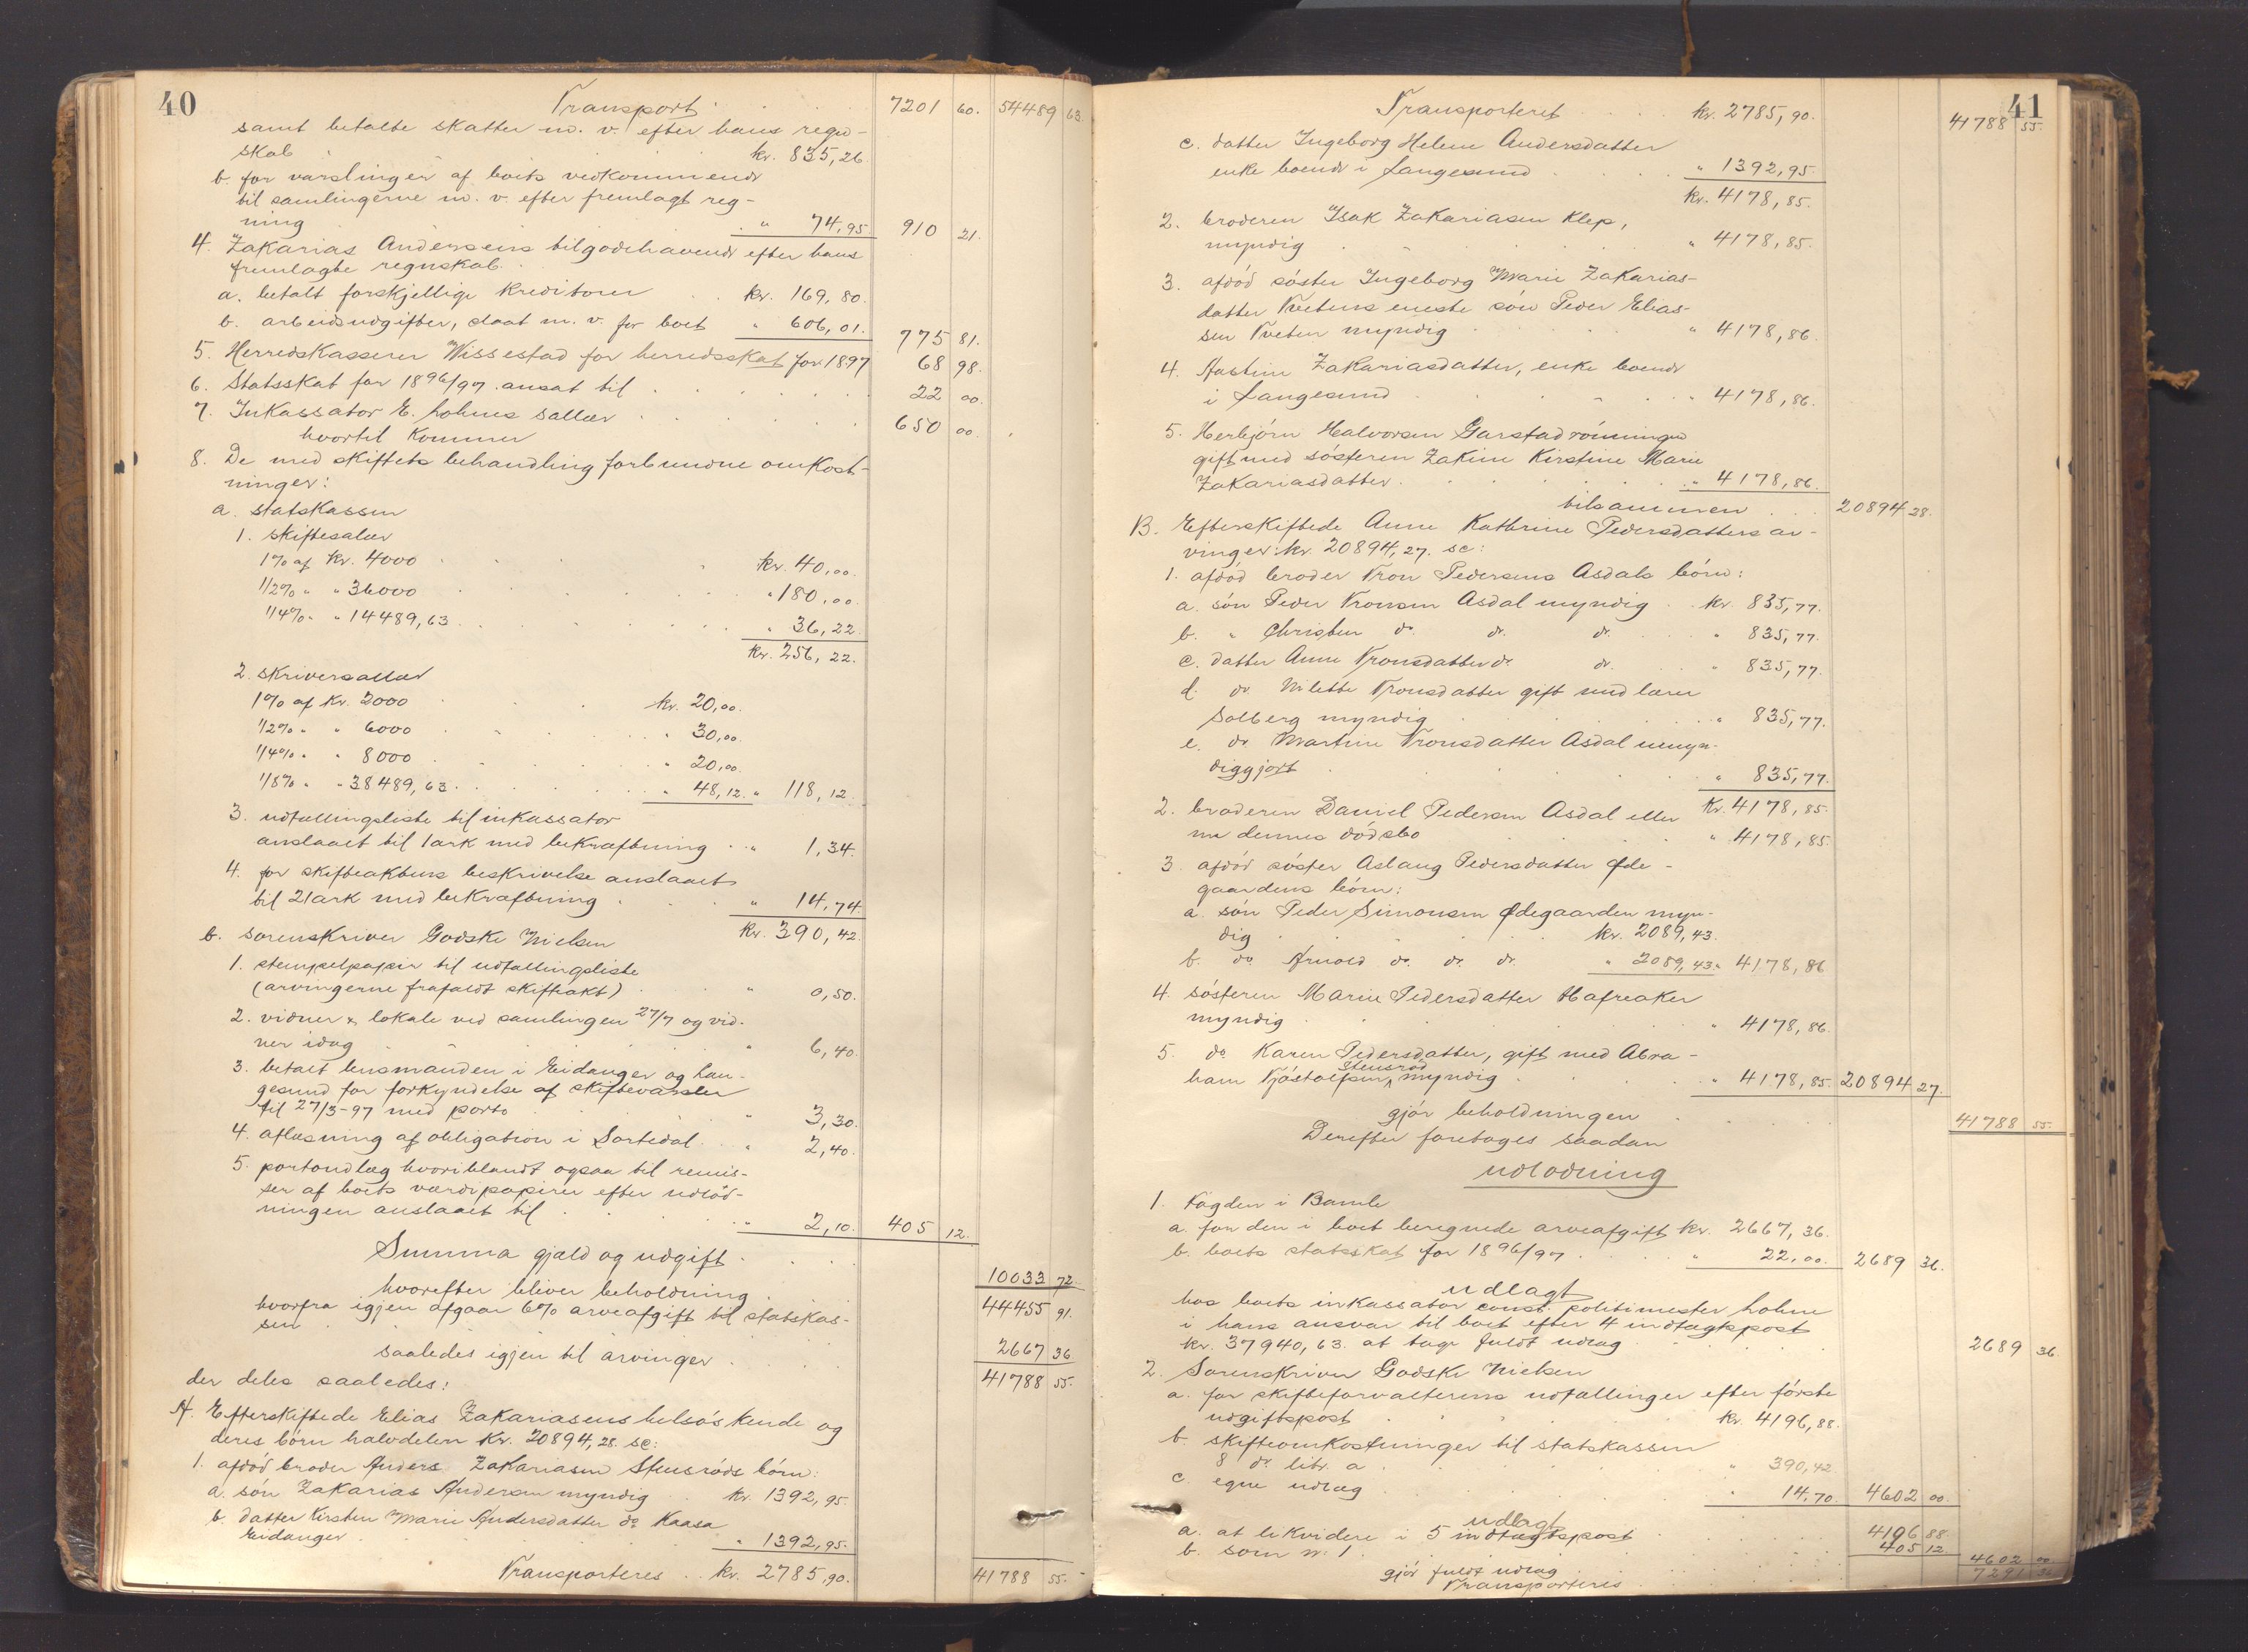 40
Transport . . . 7201 60. 54489 63.
samt betalte skatter m. v. efter hans regn-
skab . kr. 835,26.
b. for varslinger af boets vedkommende
til samlingerne m. v. efter fremlagt reg-
ning . " 74,95. 910 21.
4. Zakarias Andersens tilgodehavende efter hans
fremlagte regnskab.
a. betalt forskjellige kreditorer . . kr. 169,80.
b. arbeidsudgifter, slaat m. v. for boet " 606,01. 775 81.
5. Herredskasserer Wissestad for herredsskat for 1897 68 98.
6. Statsskat for 1896/97 ansat til . . . 22 00.
7. Inkassator E. Holms sallær . . . 650 00.
hvortil kommer
8. De med skiftets behandling forbundne omkost-
ninger:
a. statskassen
1. skiftesalær
1% af kr. 4000 . . . kr. 40,00.
1/2% " " 36000 . . . " 180,00.
1/4% " " 14489,63 . . . " 36,22.
kr. 256,22.
2. skriversallær
1% af kr. 2000 . . kr. 20,00.
1/2% " " 6000 . . . " 30,00.
1/4% " " 8000 . . . " 20,00.
1/8% " " 38489,63 . . . " 48,12. " 118,12.
3. udtællingsliste til inkassator
anslaaet til 1 ark med bekræftning . . " 1,34.
4. for skifteaktens beskrivelse anslaaet
til 21 ark med bekræftning . . . " 14,74.
kr. 390,42.
b. sorenskriver Godske Nielsen
1. stempelpapir til udtællingsliste
(arvingerne frafaldt skifteakt) . . " 0,50.
2. vidner & lokale ved samlingen 27/7 og vid-
ner idag . . . " 6,40.
3. betalt lensmanden i Eidanger og Lan-
gesund for forkyndelse af skiftevarsler
til 27/3-97 med porto . . " 3,30.
4. aflæsning af obligation i Sortedal . . " 2,40.
5. portoudlæg hvoriblandt ogsaa til remis-
ser af boets værdipapirer efter udlod-
ningen anslaaet til . . . " 2,10. 405 12.
Summa gjæld og udgift . . . 10033 72.
hvorefter bliver beholdning . 44455 91.
hvorfra igjen afgaar 6% arveafgift til statskas-
sen . . . 2667 36.
saaledes igjen til arvinger . . . 41788 55.
der deles saaledes:
A. Efterskiftede Elias Zakariasens helsøskende og
deres børn halvdelen kr. 20894,28. sc:
1. afdød broder Anders Zakariasen Stensrøds børn:
a. søn Zakarias Andersen myndig . . kr. 1392,95.
b. datter Kirsten Marie Andersdatter do Kaasa
Eidanger . . . " 1392,95.
Transporteres . . kr. 2785,90. 41788 55.
41
Transporteret . . . . kr. 2785,90. 41788 55.
c. datter Ingeborg Helene Andersdatter
enke boende i Langesund . . . " 1392,95.
kr. 4178,85.
2. broderen Isak Zakariasen Klep,
myndig . . . " 4178,85.
3. afdød søster Ingeborg Marie Zakarias-
datter Tvetens eneste søn Peder Elias-
sen Tveten myndig . . . " 4178,86.
4. Aastine Zakariasdatter, enke boende
i Langesund . . . " 4178,86.
5. Herbjørn Halvorsen Garstadrønningen
gift med søsteren Zakine Kirstine Marie
Zakariasdatter . . . " 4178,86.
tilsammen . . . 20894 28.
B. Efterskiftede Anne Kathrine Pedersdatters ar-
vinger: kr. 20894,27. sc:
1. afdød broder Tron Pedersens Asdals børn:
a. søn Peder Tronsen Asdal myndig . . kr. 835,77.
b. " Christen do. do. do. . . . " 835,77.
c. datter Anne Tronsdatter do. do. . . . " 835,77.
d. do. Nilette Tronsdatter gift med lærer
Solberg myndig . . . " 835,77.
e. do. Martine Tronsdatter Asdal umyn-
diggjort . . . " 835,77.
Kr. 4178,85.
2. broderen Daniel Pedersen Asdal eller
nu dennes dødsbo . . . " 4178,85.
3. afdød søster Aslaug Pedersdatter Øde-
gaardens børn:
a. søn Peder Simonsen Ødegaarden myn-
dig . . . kr. 2089,43.
b. do. Arnold do. do. do. " 2089,43. " 4178,86
4. søsteren Maren Pedersdatter Hafreaker
myndig . . . " 4178,86.
5. do. Karen Pedersdatter, gift med Abra-
Stensrød
ham Kjøstolfsen, myndig . . . " 4178,85. 20894 27.
gjør beholdningen . . . 41788 55.
Derefter foretoges saadan
udlodning
1. Fogden i Bamle
a. for den i boet beregnede arveafgift kr. 2667,36.
b. boets statsskat for 1896/97 . . . " 22,00. 2689 36.
udlagt
hos boets inkassator const. politimester Holm
i hans ansvar til boet efter 4 indtægtspost
kr. 37940,63. at tage fuldt udlæg . . . 2689 36.
2. Sorenskriver Godske Nielsen
a. for skifteforvalterens udtællinger efter første
udgiftspost . . . kr. 4196,88.
b. skifteomkostninger til statskassen
8 do. litr. a . . . " 390,42
c. egne udlæg . . . " 14,70. 4602 00.
udlagt
a. at likvidere i 5 indtægtspost . . . 4196 88.
b. som n: 1 . . . 405 12.
gjør fuldt udlæg . . . 4602 00
Transporteres . . . 7291 36